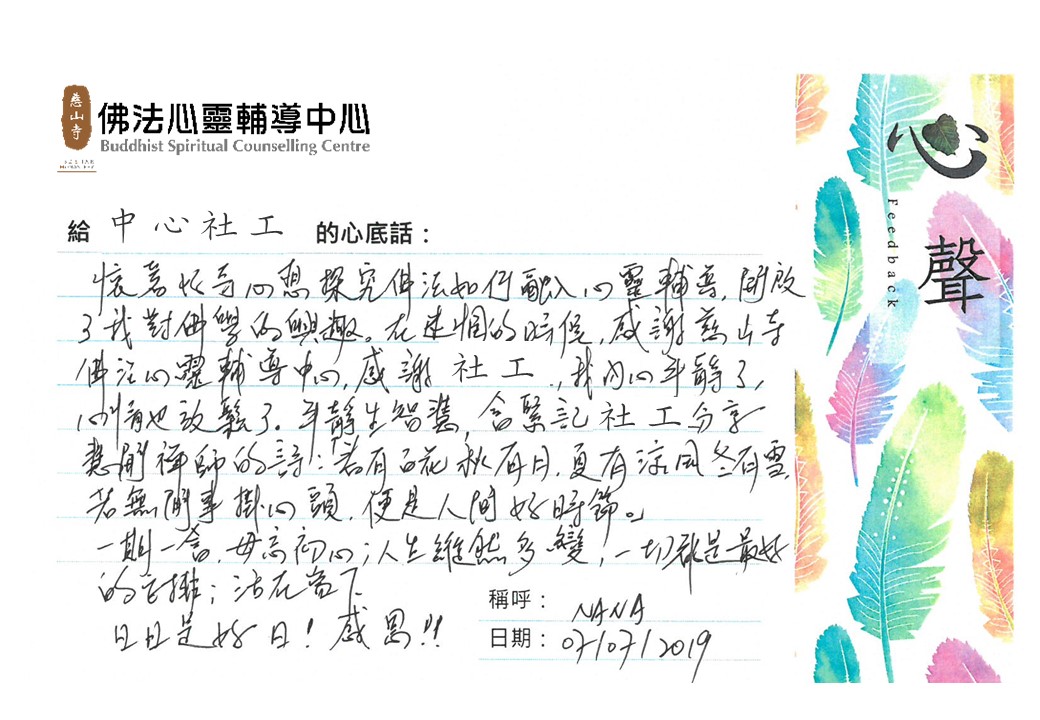 慈山寺
佛法心靈輔導中心
Buddhist Spiritual Counselling Centre
TSZ SHAN MONASTERY
心聲
Feedback
給 中心社工 的心底話：
懷著好奇心想探究佛法如何融入心靈輔導，開啟
了我對佛學的興趣。在迷惘的時候，感謝慈山寺
佛法心靈輔導中心，感謝 社工，我內心平靜了，
心情也放鬆了。平靜生智慧，會緊記社工分享
慧開禪師的詩：「春有百花秋有月，夏有涼風冬有雪，
若無閒事掛心頭，便是人間好時節。」
一期一會，毋忘初心；人生雖然多變，一切都是最好
的安排；活在當下
日日是好日！感恩!!
稱呼： NANA
日期： 07/07/2019